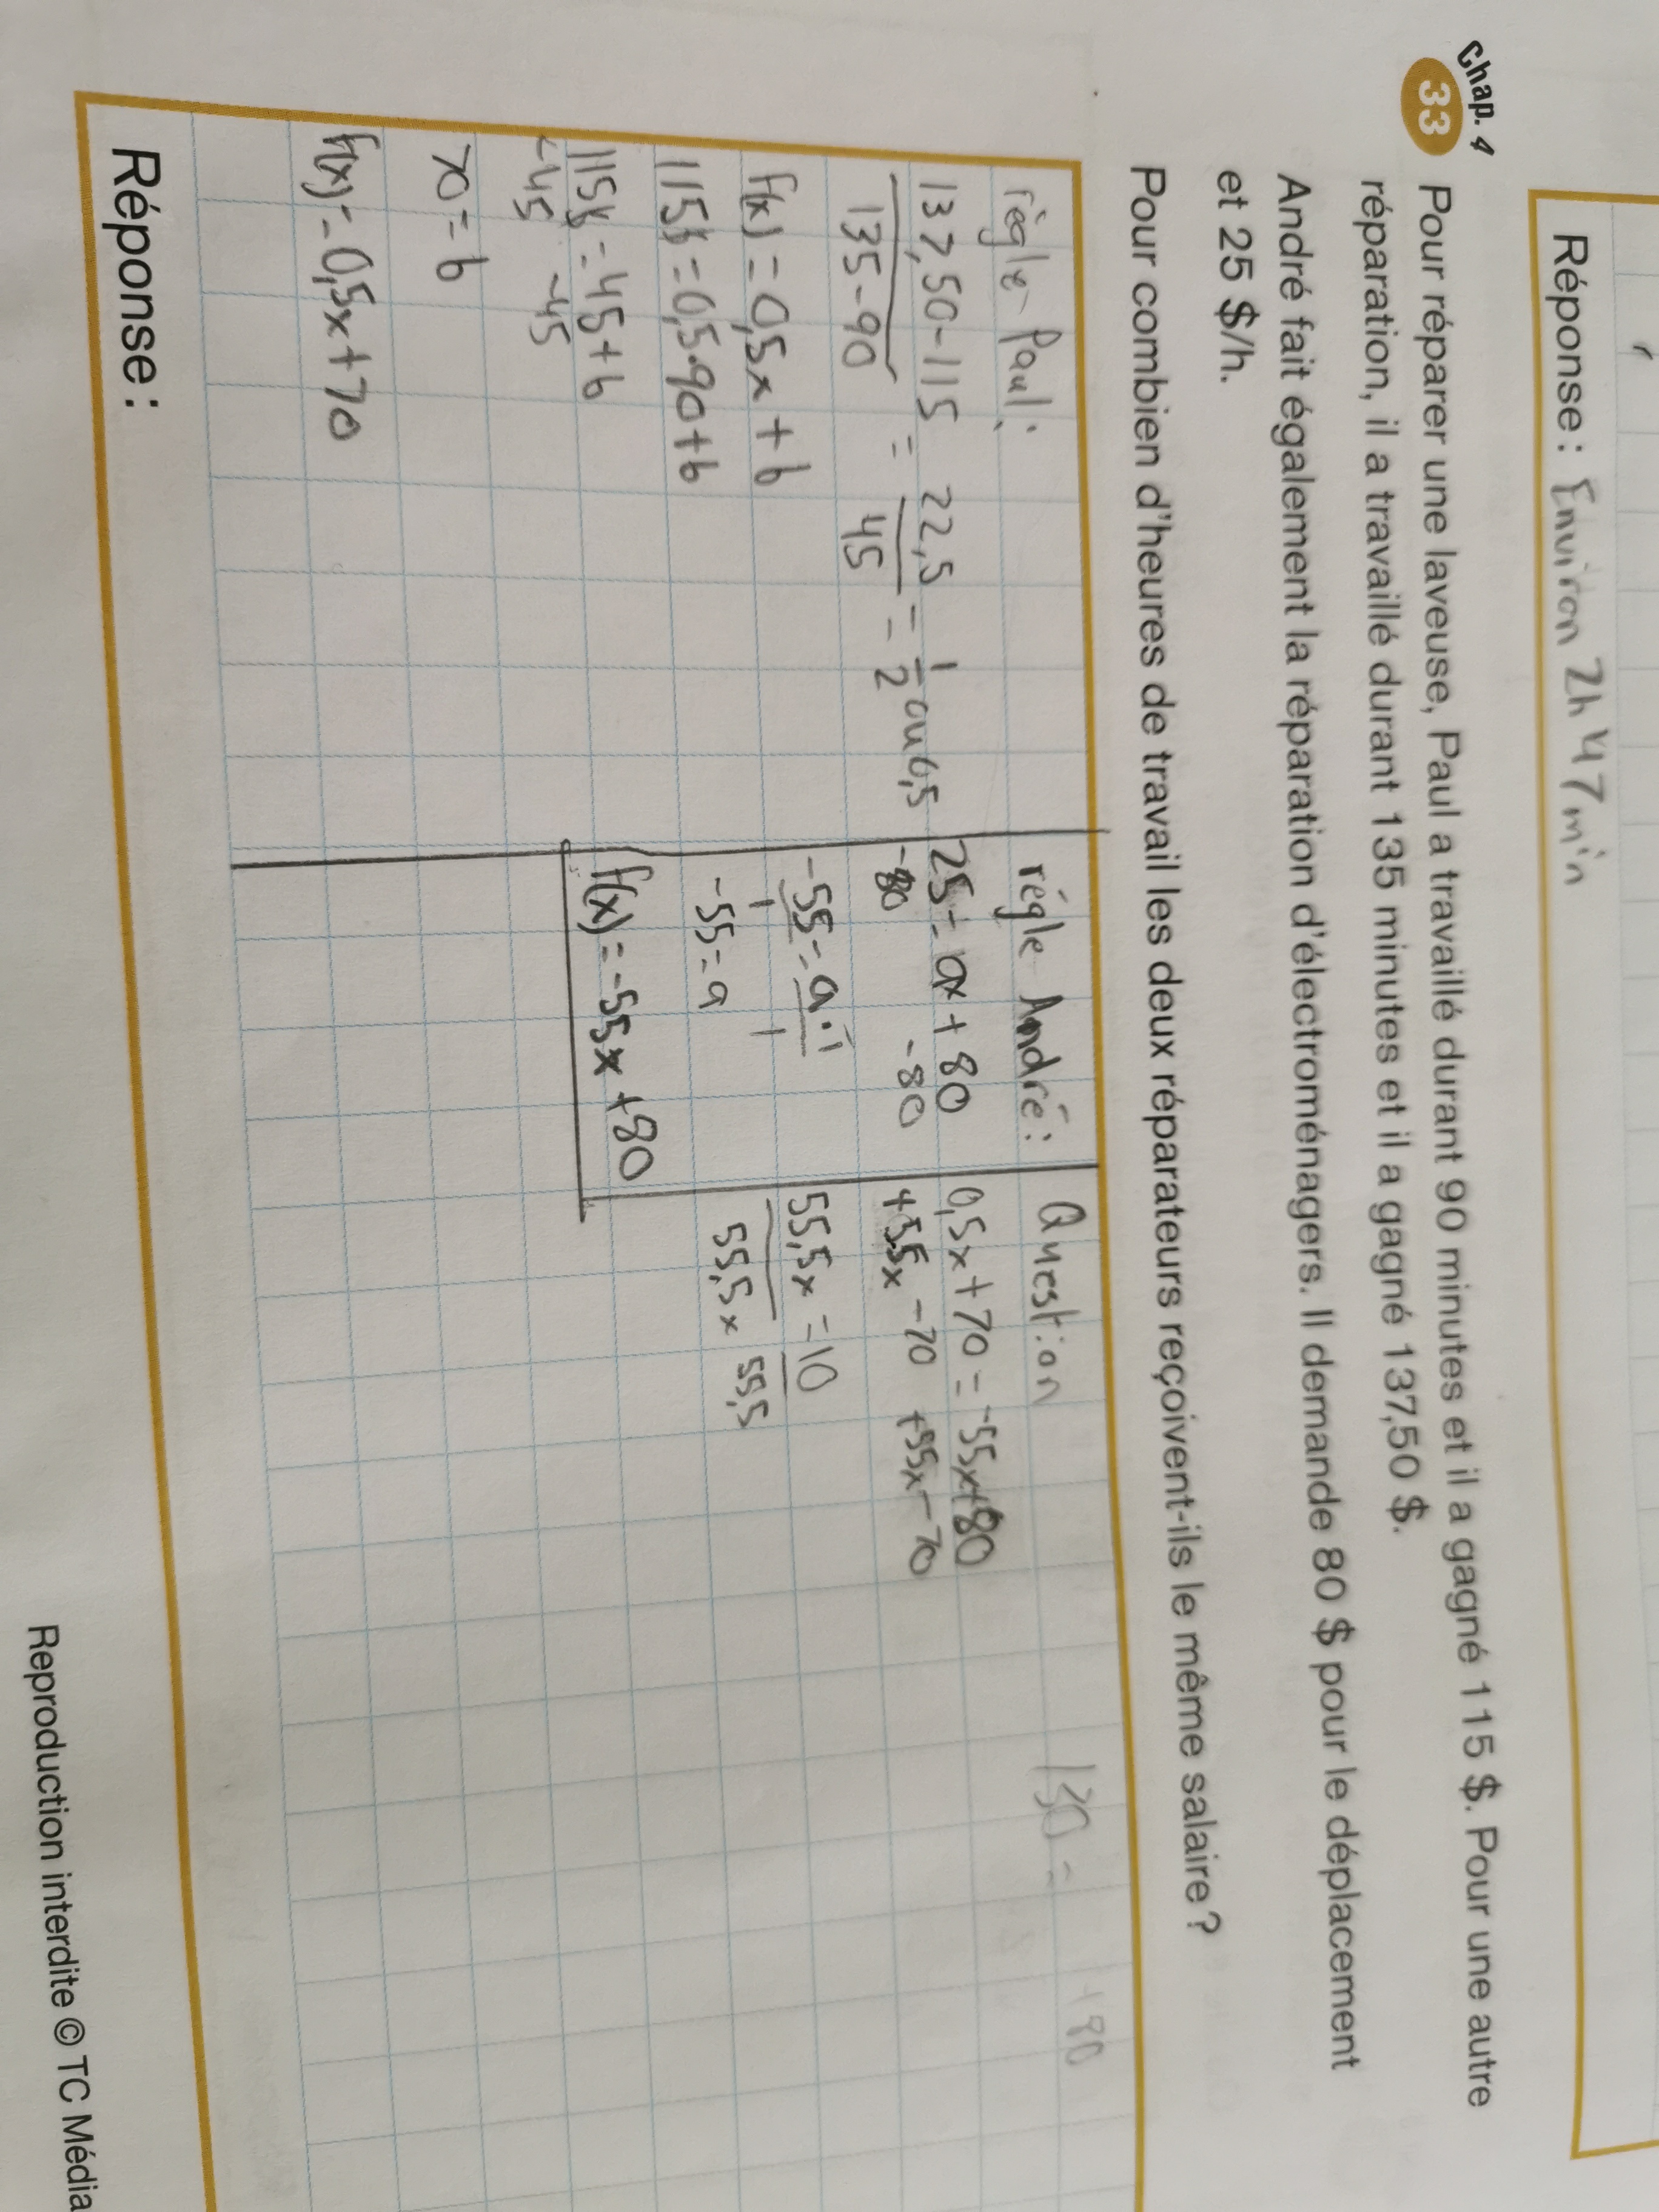 Réponse : Environ 2h 47 min
Chap. 4
33 Pour réparer une laveuse, Paul a travaillé durant 90 minutes et il a gagné 115 $. Pour une autre
réparation, il a travaillé durant 135 minutes et il a gagné 137,50 $.
André fait également la réparation d'électroménagers. Il demande 80 $ pour le déplacement
et 25 $/h.
Pour combien d'heures de travail les deux réparateurs reçoivent-ils le même salaire ?
règle Paul:
137,50-115 = 22,5 = 1 ou 0,5
135-90 45 2
f(x) = 0,5x + b
115 = 0,5·90+b
115 = 45+b
-45 -45
70 = b
f(x) = 0,5x+70
règle André:
25 = ax + 80
-80 -80
-55 = a·1
1 1
-55 = a
f(x) = -55x +80
Question
0,5x+70 = -55x+80
+55x -70 +55x -70
55,5x = 10
55,5x 55,5
130 =
+80
Réponse :
Reproduction interdite © TC Média